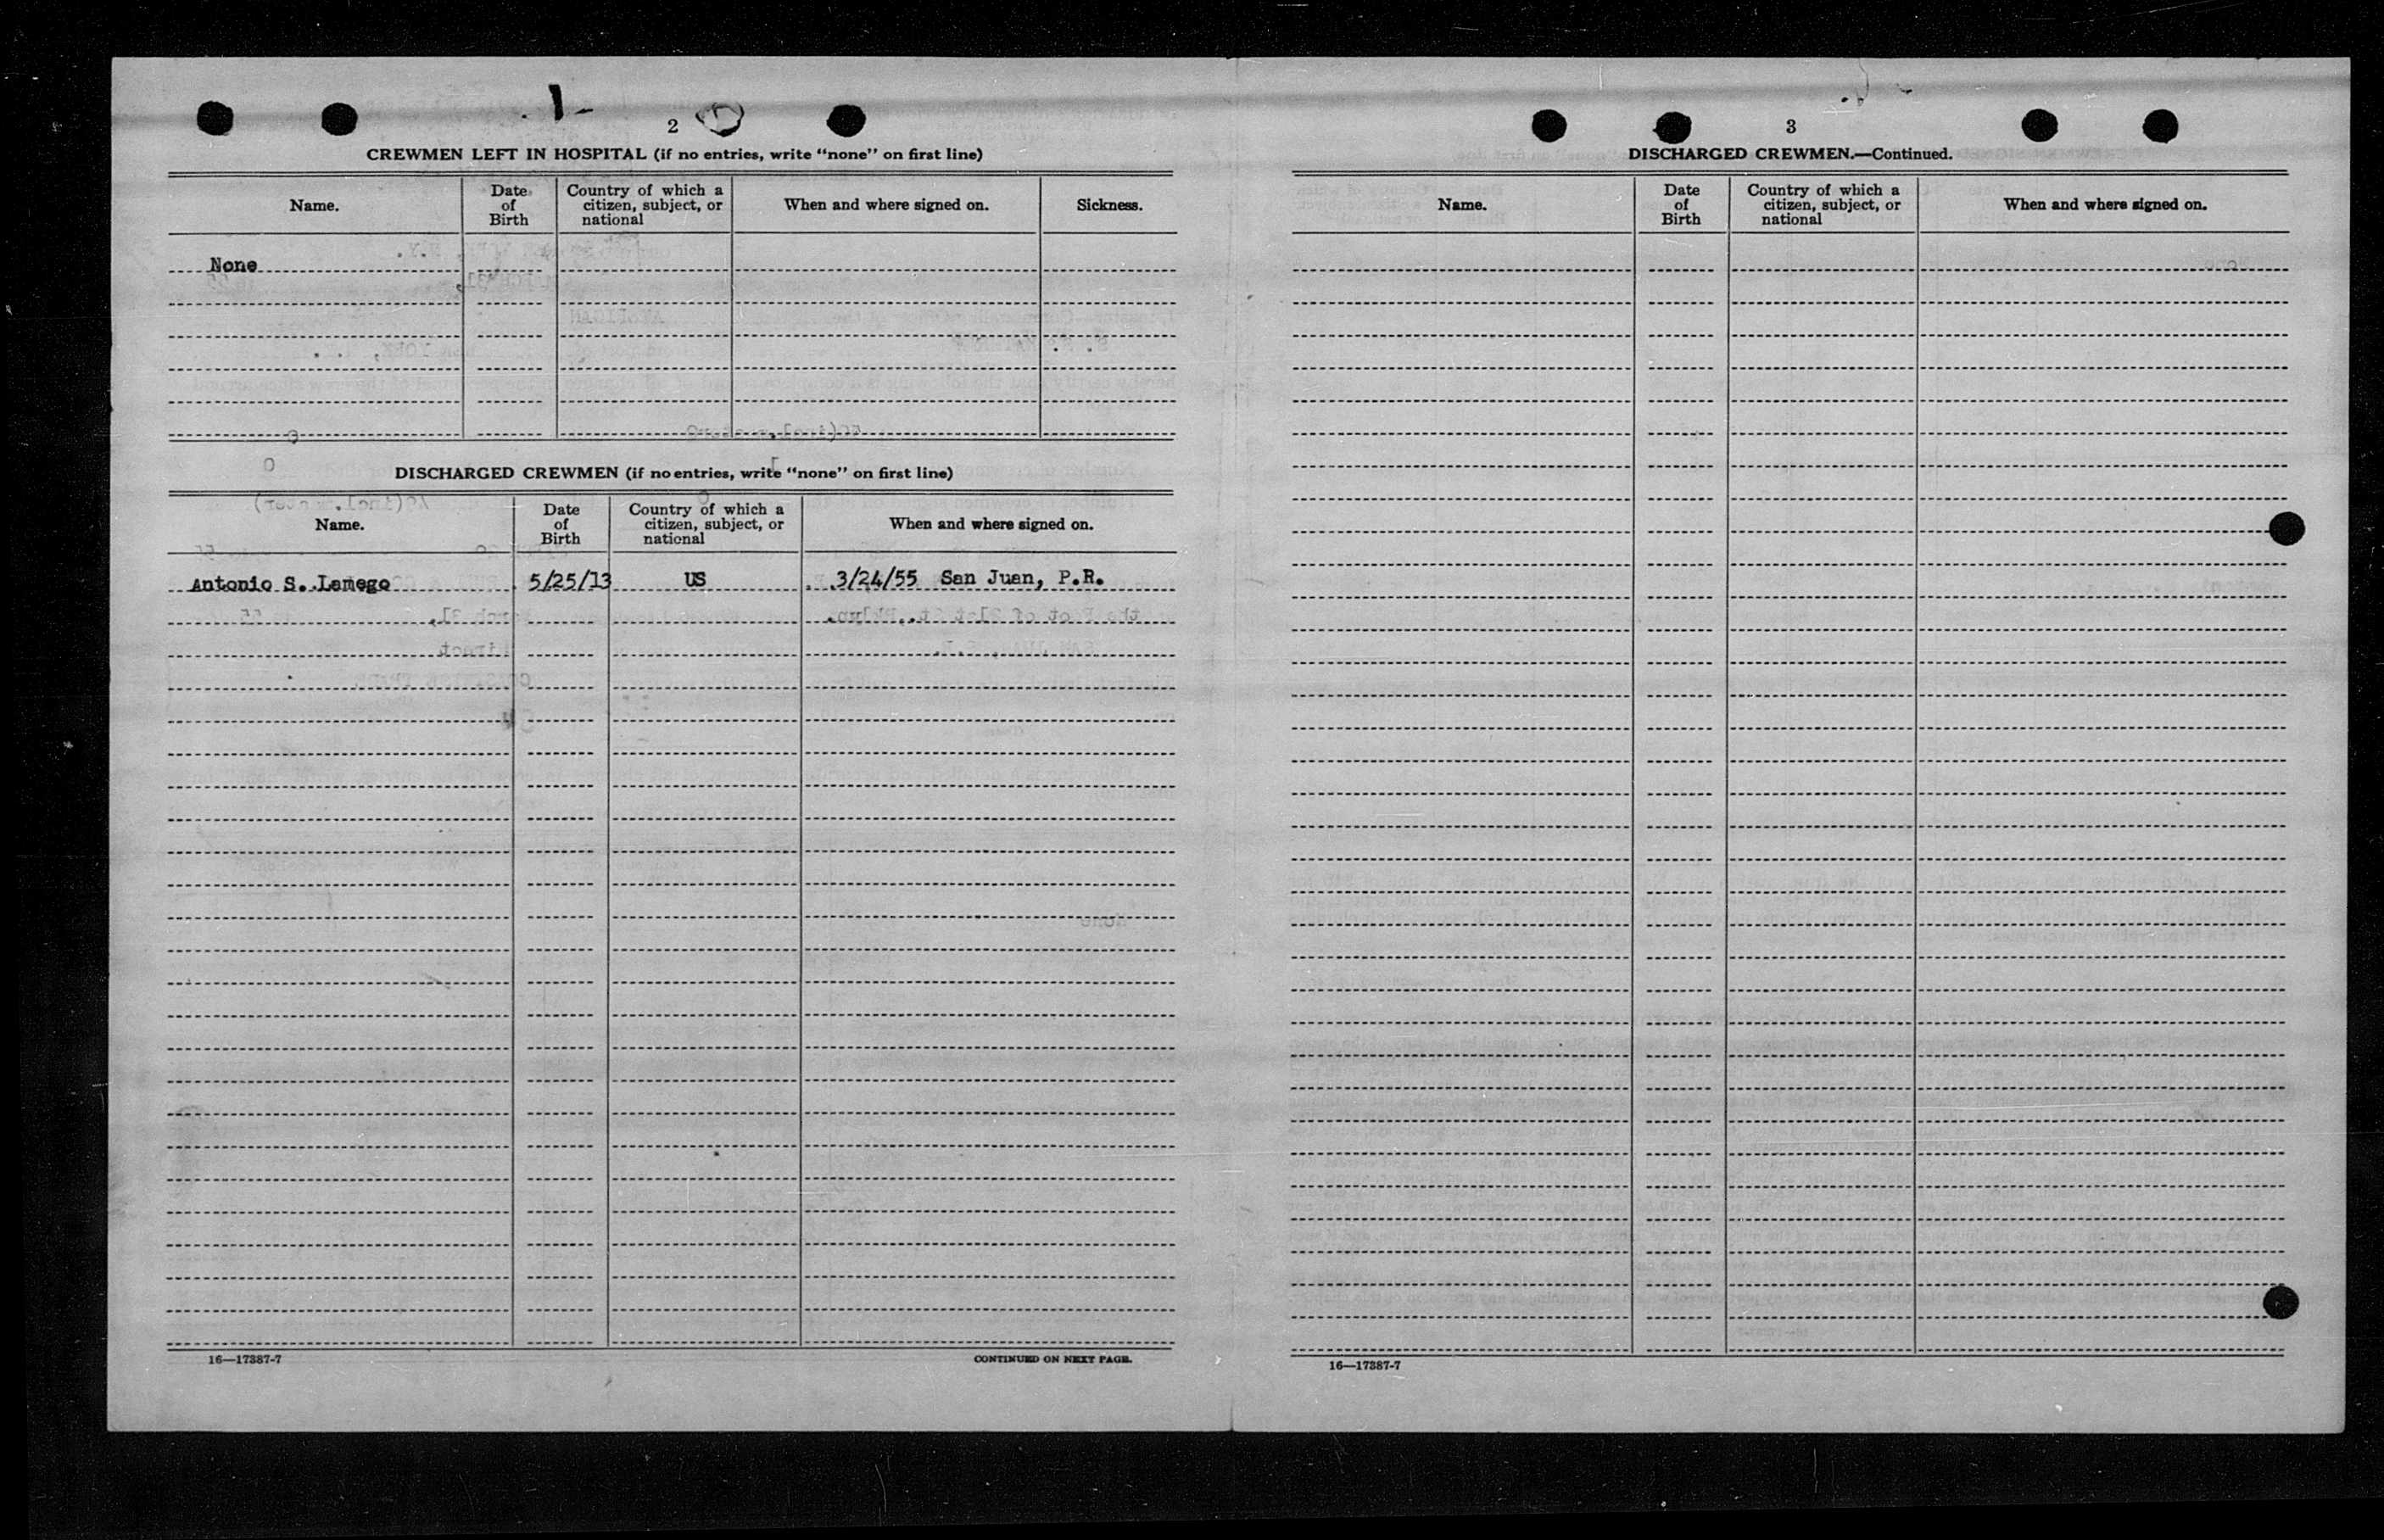 2
CREWMEN LEFT IN HOSPITAL (if no entries, write “none” on first line)
Name.
Date of Birth
Country of which a citizen, subject, or national
When and where signed on.
Sickness.
None
DISCHARGED CREWMEN (if no entries, write “none” on first line)
Name.
Date of Birth
Country of which a citizen, subject, or national
When and where signed on.
Antonio S. Lamego 5/25/13 US 3/24/55 San Juan, P.R.
16—17387-7 CONTINUED ON NEXT PAGE.
3
DISCHARGED CREWMEN.—Continued.
Name.
Date of Birth
Country of which a citizen, subject, or national
When and where signed on.
16—17387-7